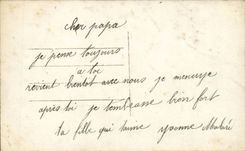 cher papa
je pense toujours
a toi
revient bentot avec nous je menuye
après toi je tembrasse bien fort
ta fille qui taime yvonne